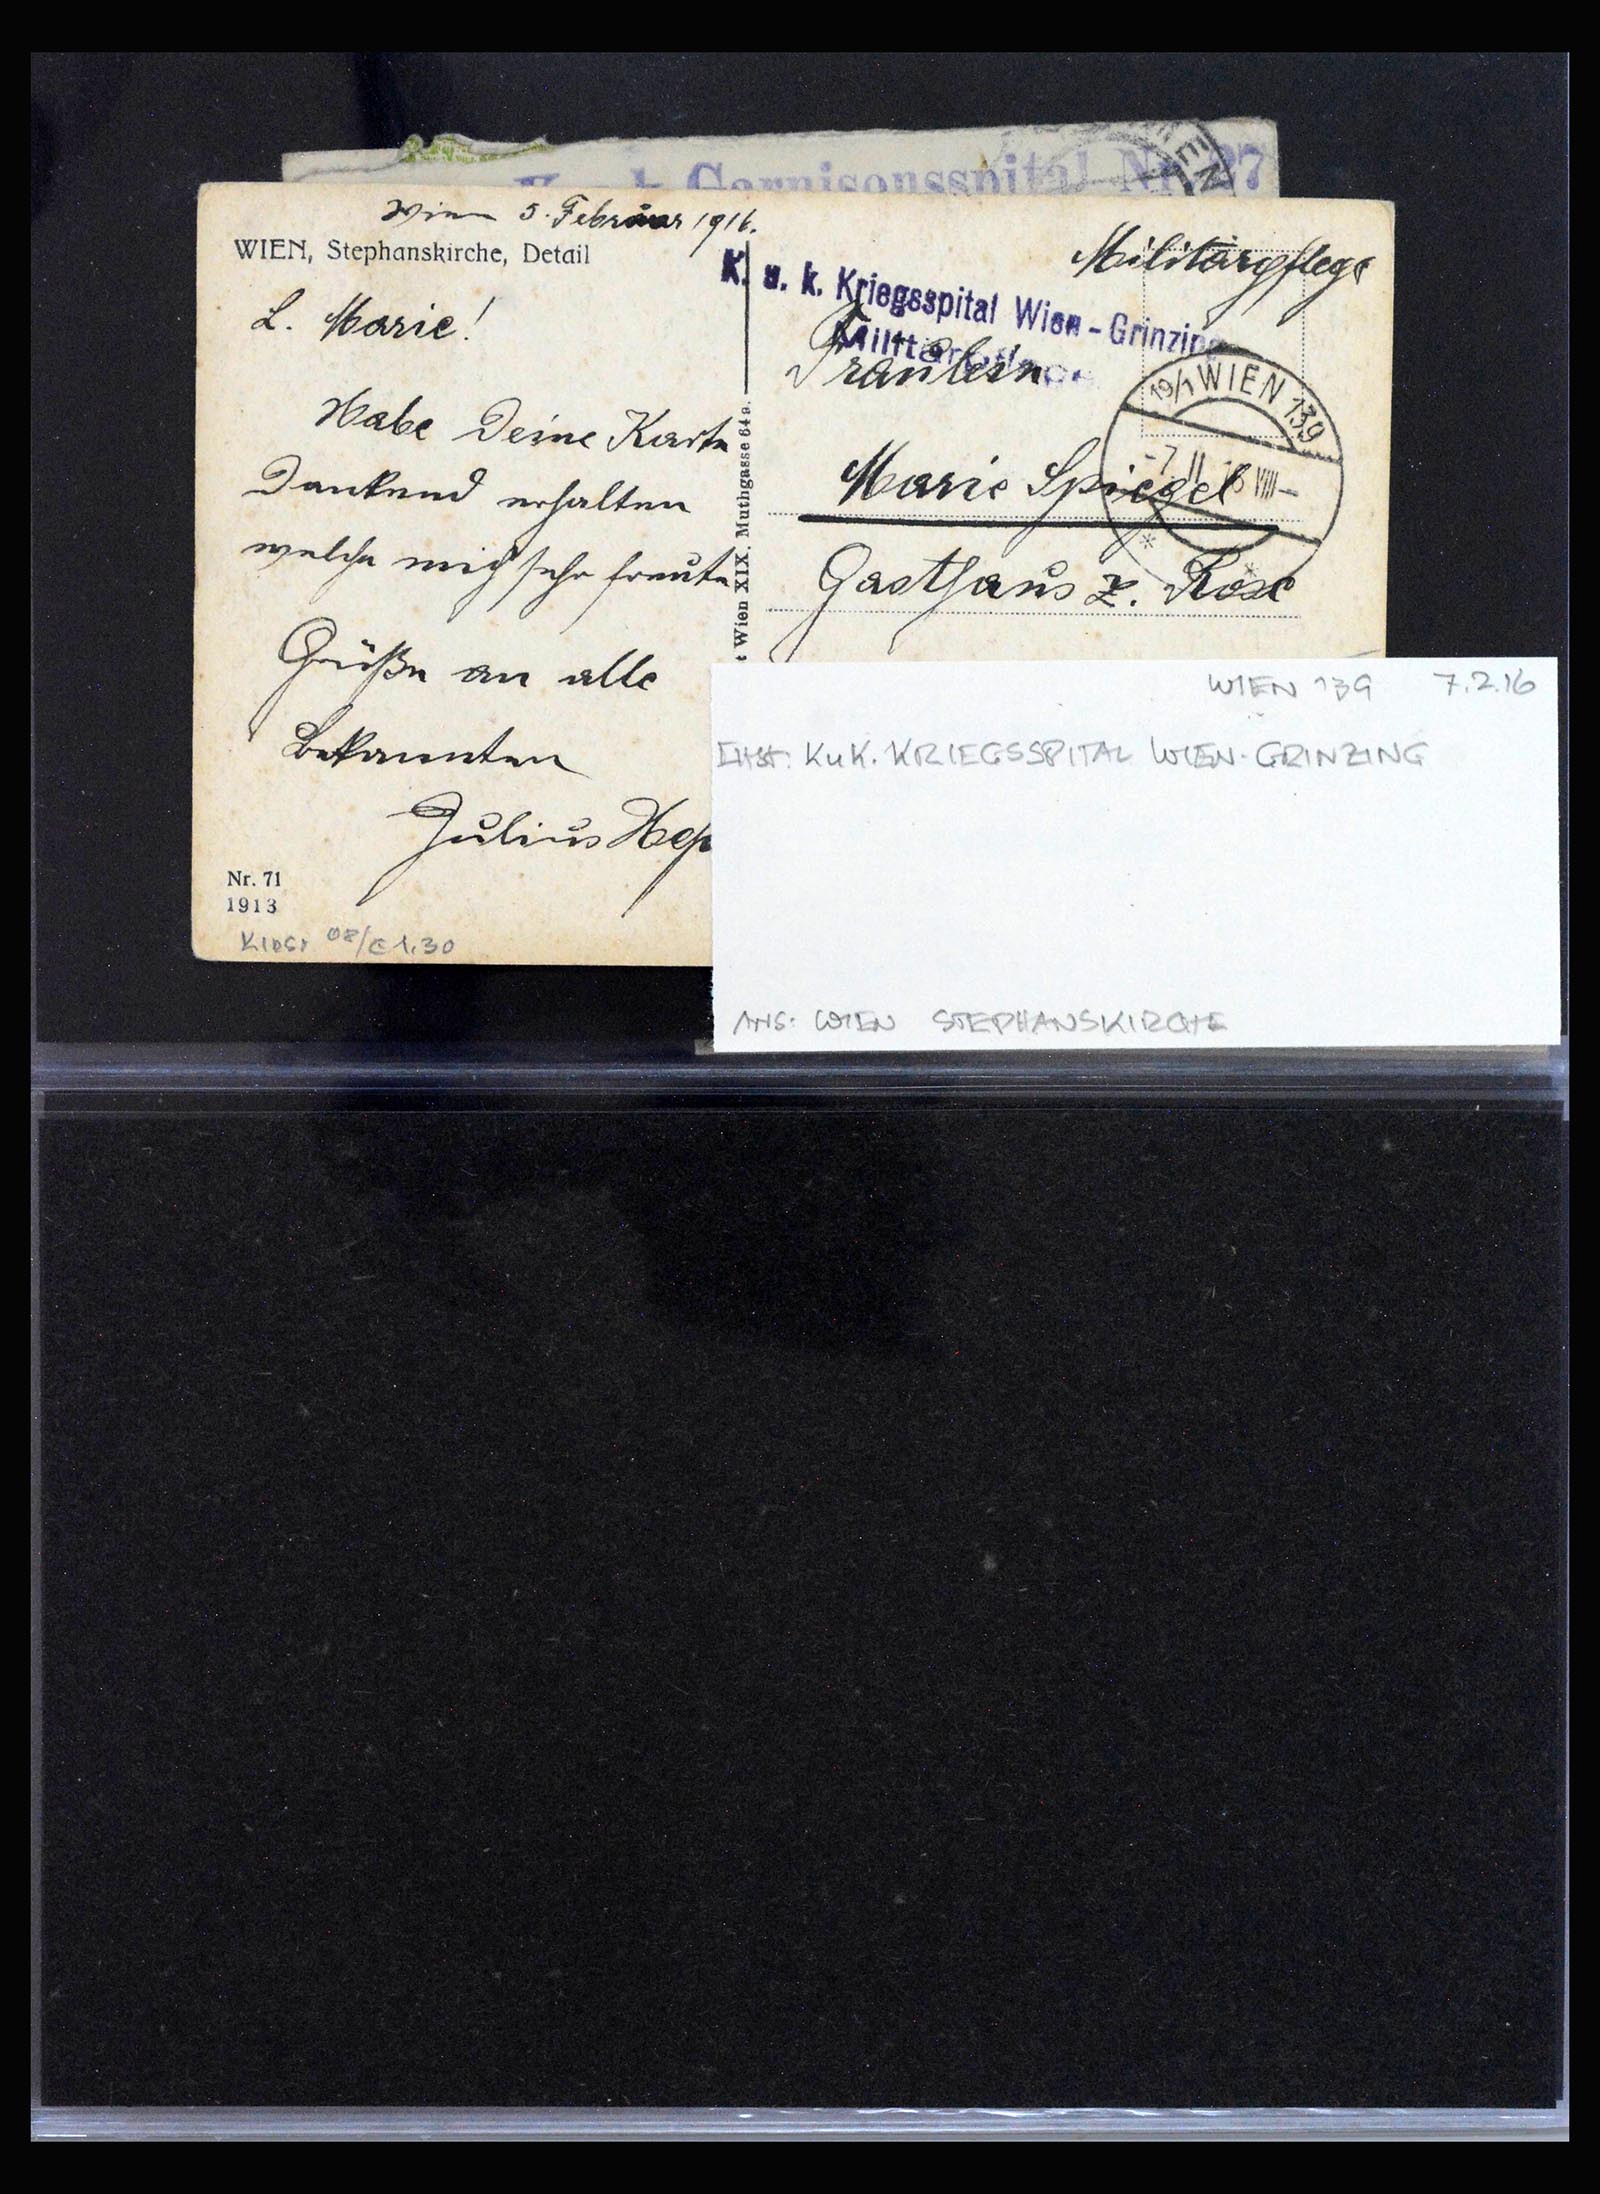 K. u. k. Garnisonsspital Nr. 27
Wien 5. Februar 1916.
WIEN, Stephanskirche, Detail
L. Marie!
Habe Deine Karte
Dankend erhalten
welche mich sehr freute
Grüße an alle
Bekannten
Julius Hep
Nr. 71
1913
08/€1.30
Wien XIX. Muthgasse 64a.
Militärpflege
K. u. k. Kriegsspital Wien-Grinzing
19/1 WIEN 139
-7.II.16 VIII-
Fräulein
Marie Spiegel
Gasthaus z. Rose
WIEN 139 7.2.16
KuK. KRIEGSSPITAL WIEN-GRINZING
ANS: WIEN STEPHANSKIRCHE